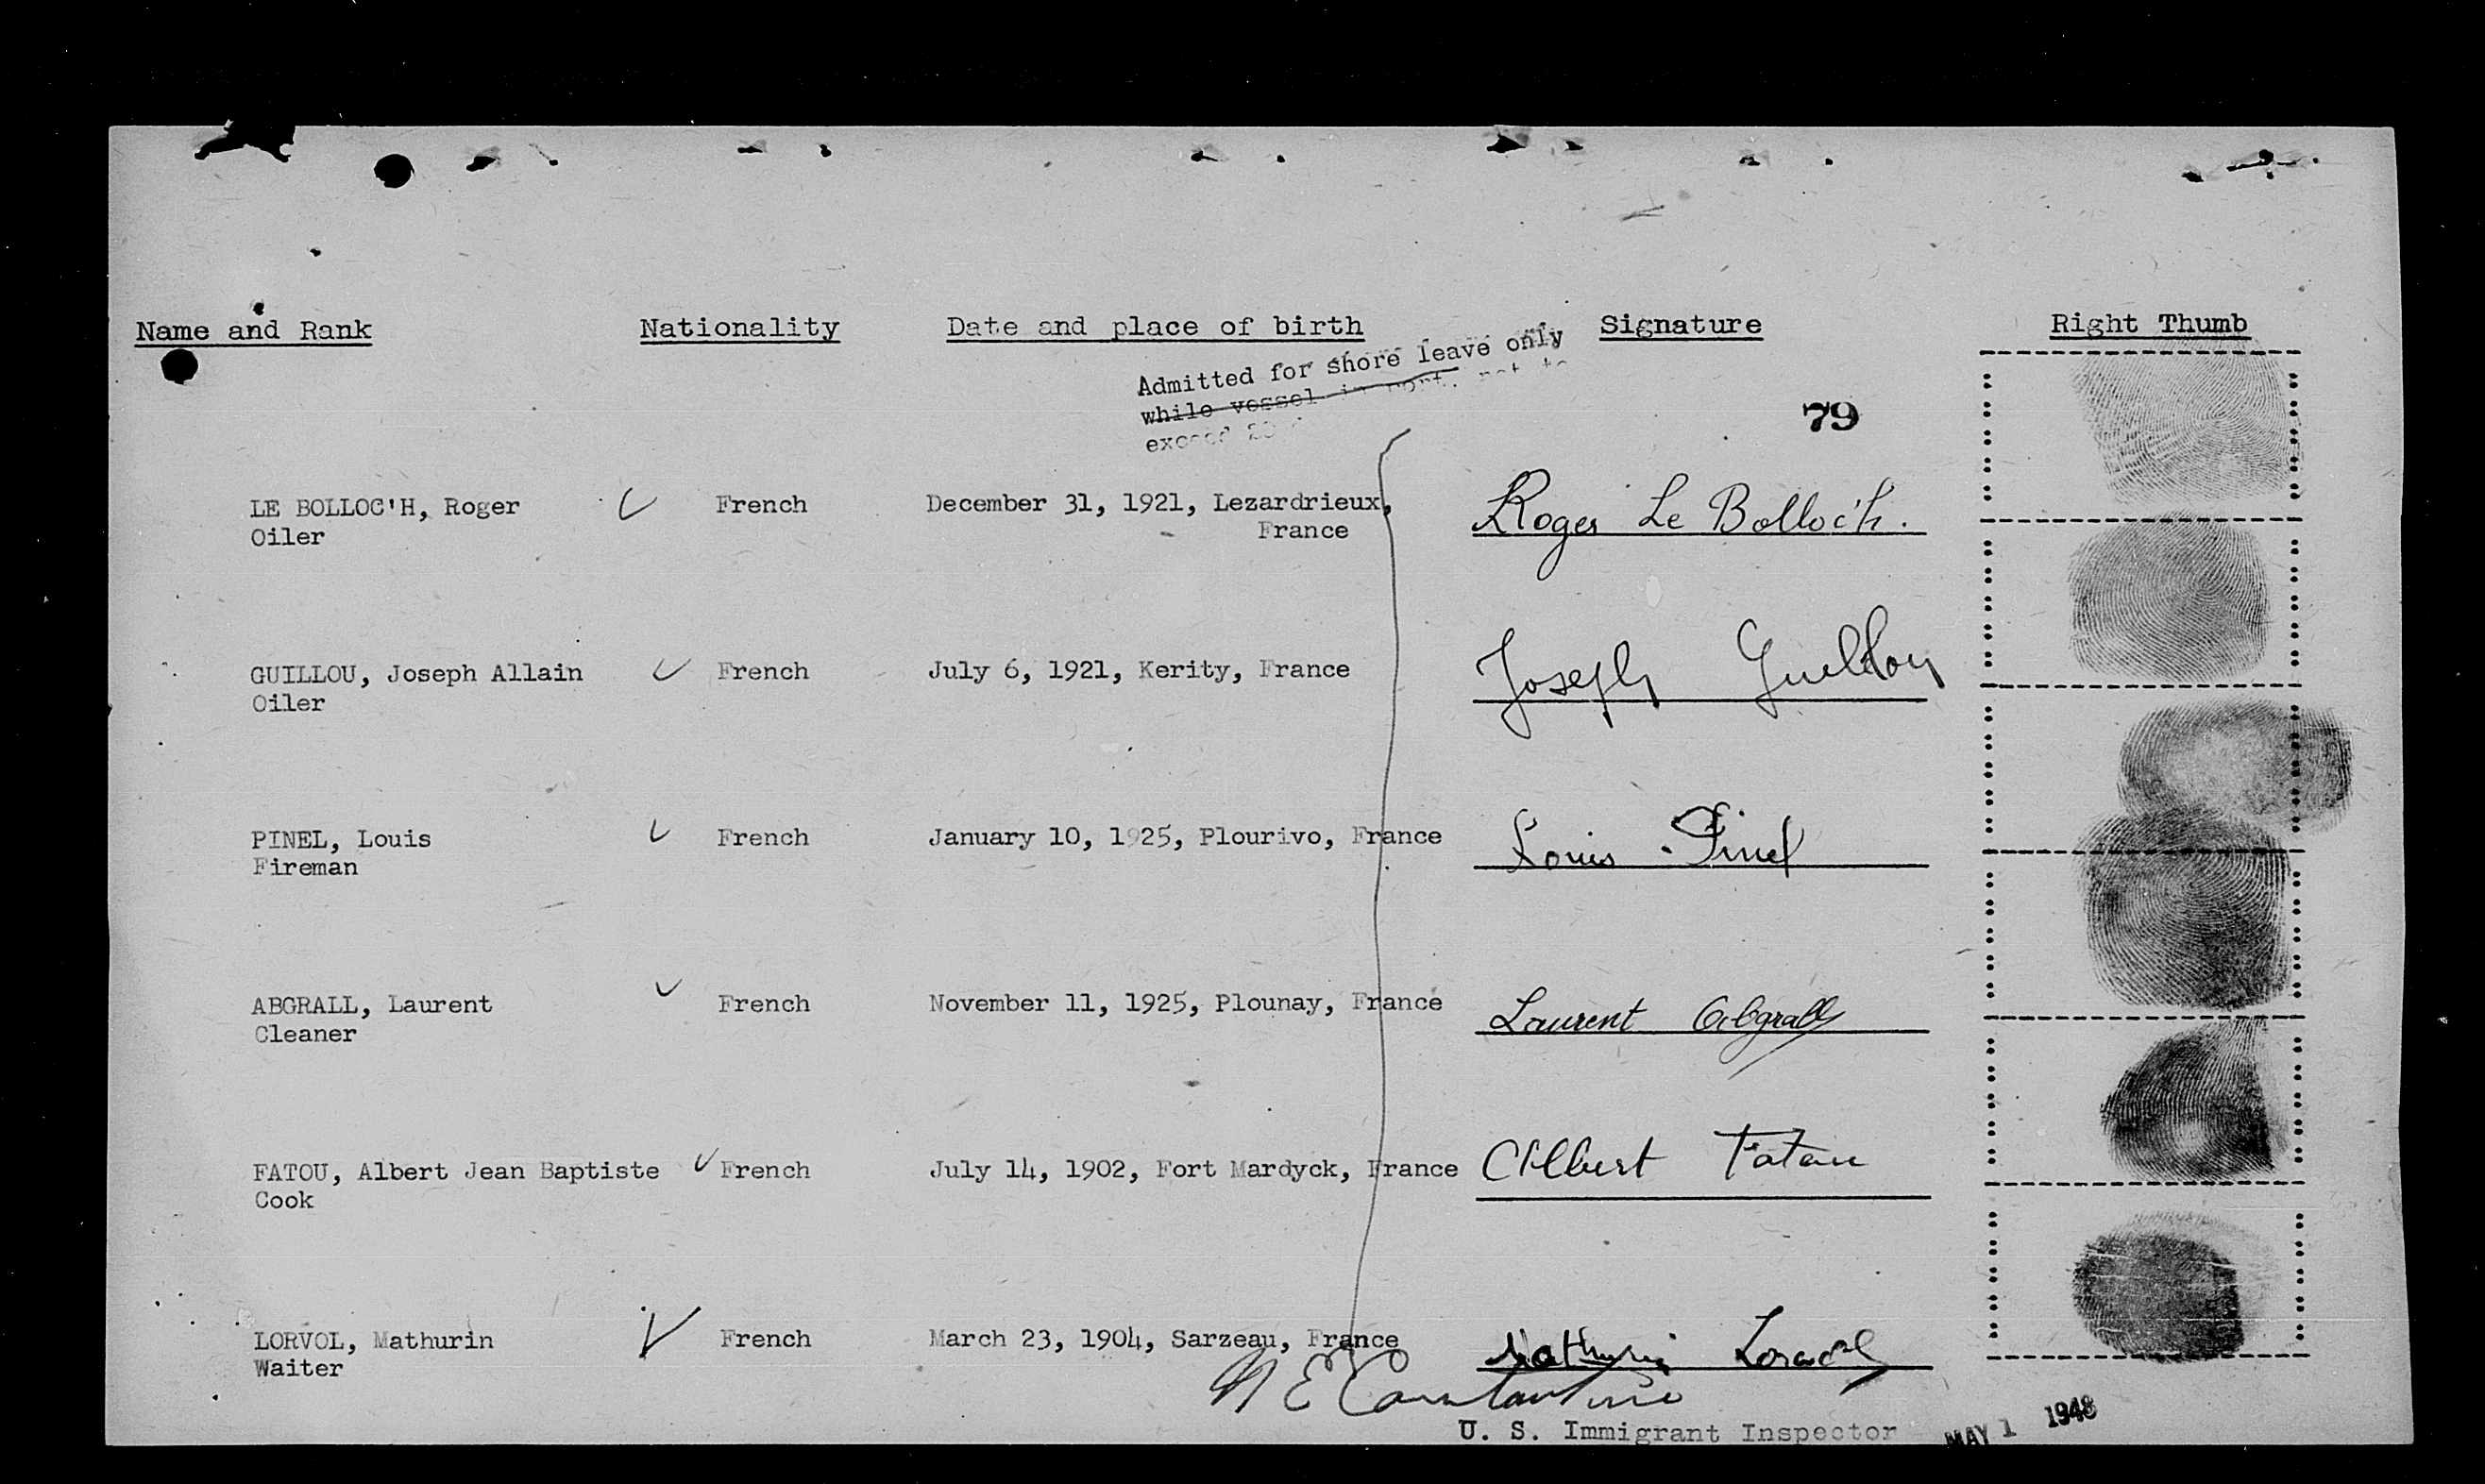 Name and Rank Nationality Date and place of birth Signature Right Thumb
Admitted for shore leave only
while vessel in port, not to
exceed 29
79
LE BOLLOC'H, Roger French December 31, 1921, Lezardrieux, Roger Le Bolloc'h.
Oiler France
GUILLOU, Joseph Allain French July 6, 1921, Kerity, France Joseph Guillou
Oiler
PINEL, Louis French January 10, 1925, Plourivo, France Louis Pinel
Fireman
ABGRALL, Laurent French November 11, 1925, Plounay, France Laurent Abgrall
Cleaner
FATOU, Albert Jean Baptiste French July 14, 1902, Fort Mardyck, France Albert Fatou
Cook
LORVOL, Mathurin French March 23, 1904, Sarzeau, France Mathurin Lorvol
Waiter
N E Constantine
U. S. Immigrant Inspector MAY 1 1948